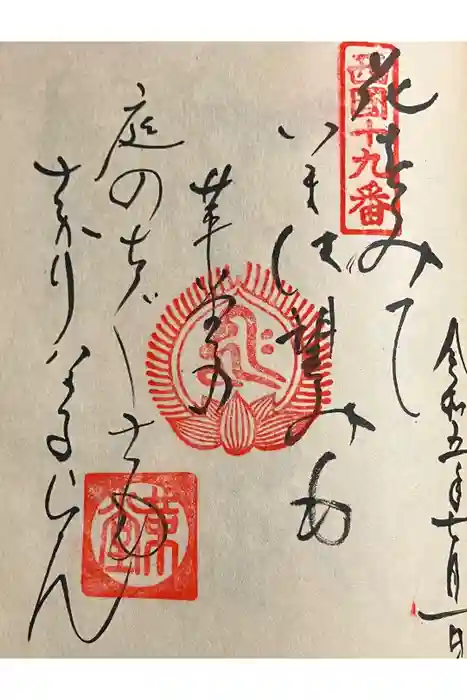 西國十九番
花をみて
いまは望みも
革堂の
庭のちぐさも
さかりなるらん
令和五年七月一日
革堂